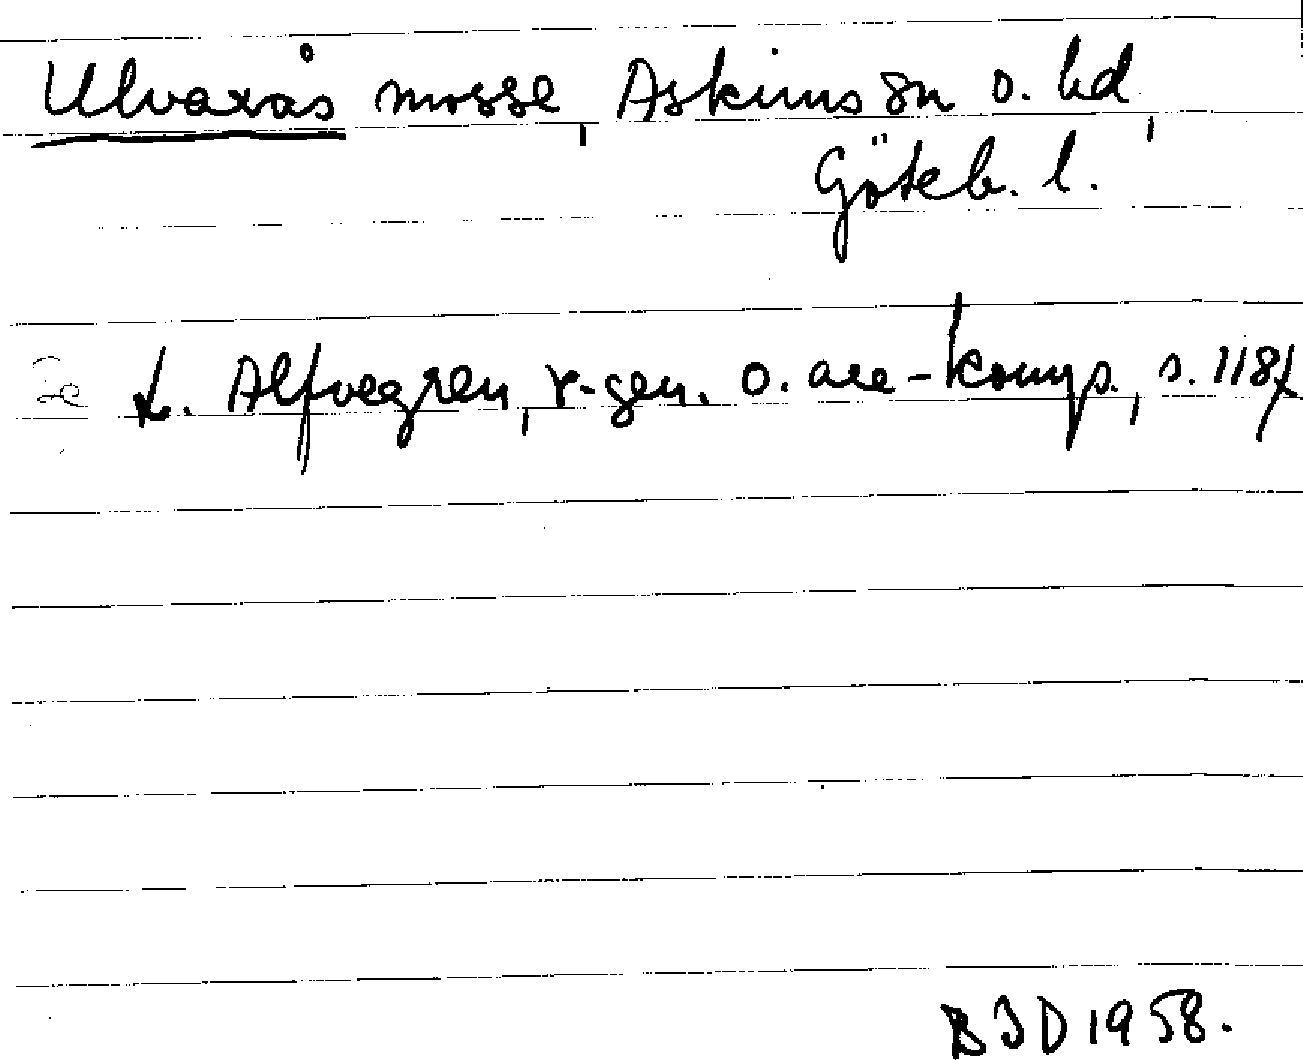 Ulvarås mosse, Askims sn o. hd,
Göteb. l.
L. Alfvegren, r-gen. o. ack-komp., s. 118f
BJD 1958.